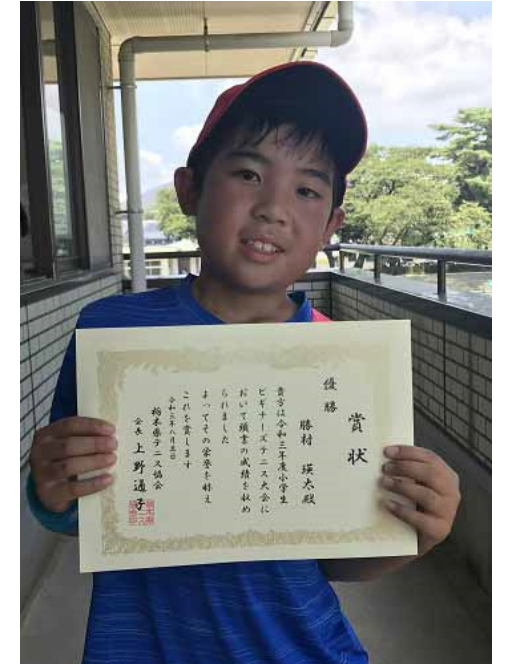 賞状
優勝
勝村 瑛太殿
貴方は令和三年度小学生
ビギナーズテニス大会に
おいて頭書の成績を収め
られました
よってその栄誉を称え
これを賞します
令和三年八月五日
栃木県テニス協会
会長 上野通子